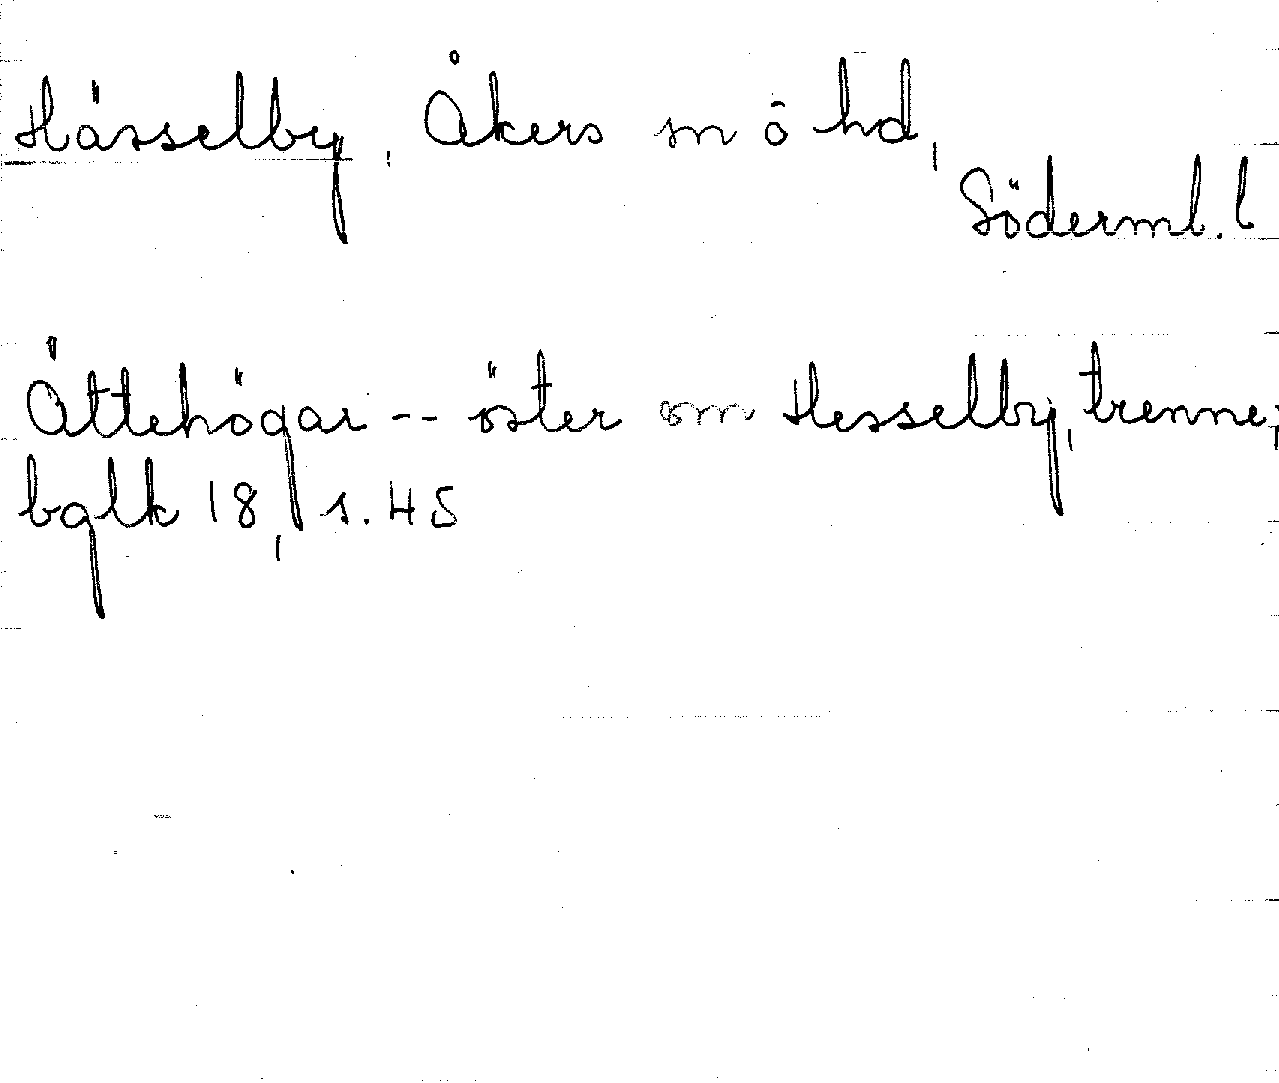 Hässelby, Åkers sn o hd,
Söderml. l
Ättehögar -- öster om Hesselby, trenne;
bglk 18, s. 45